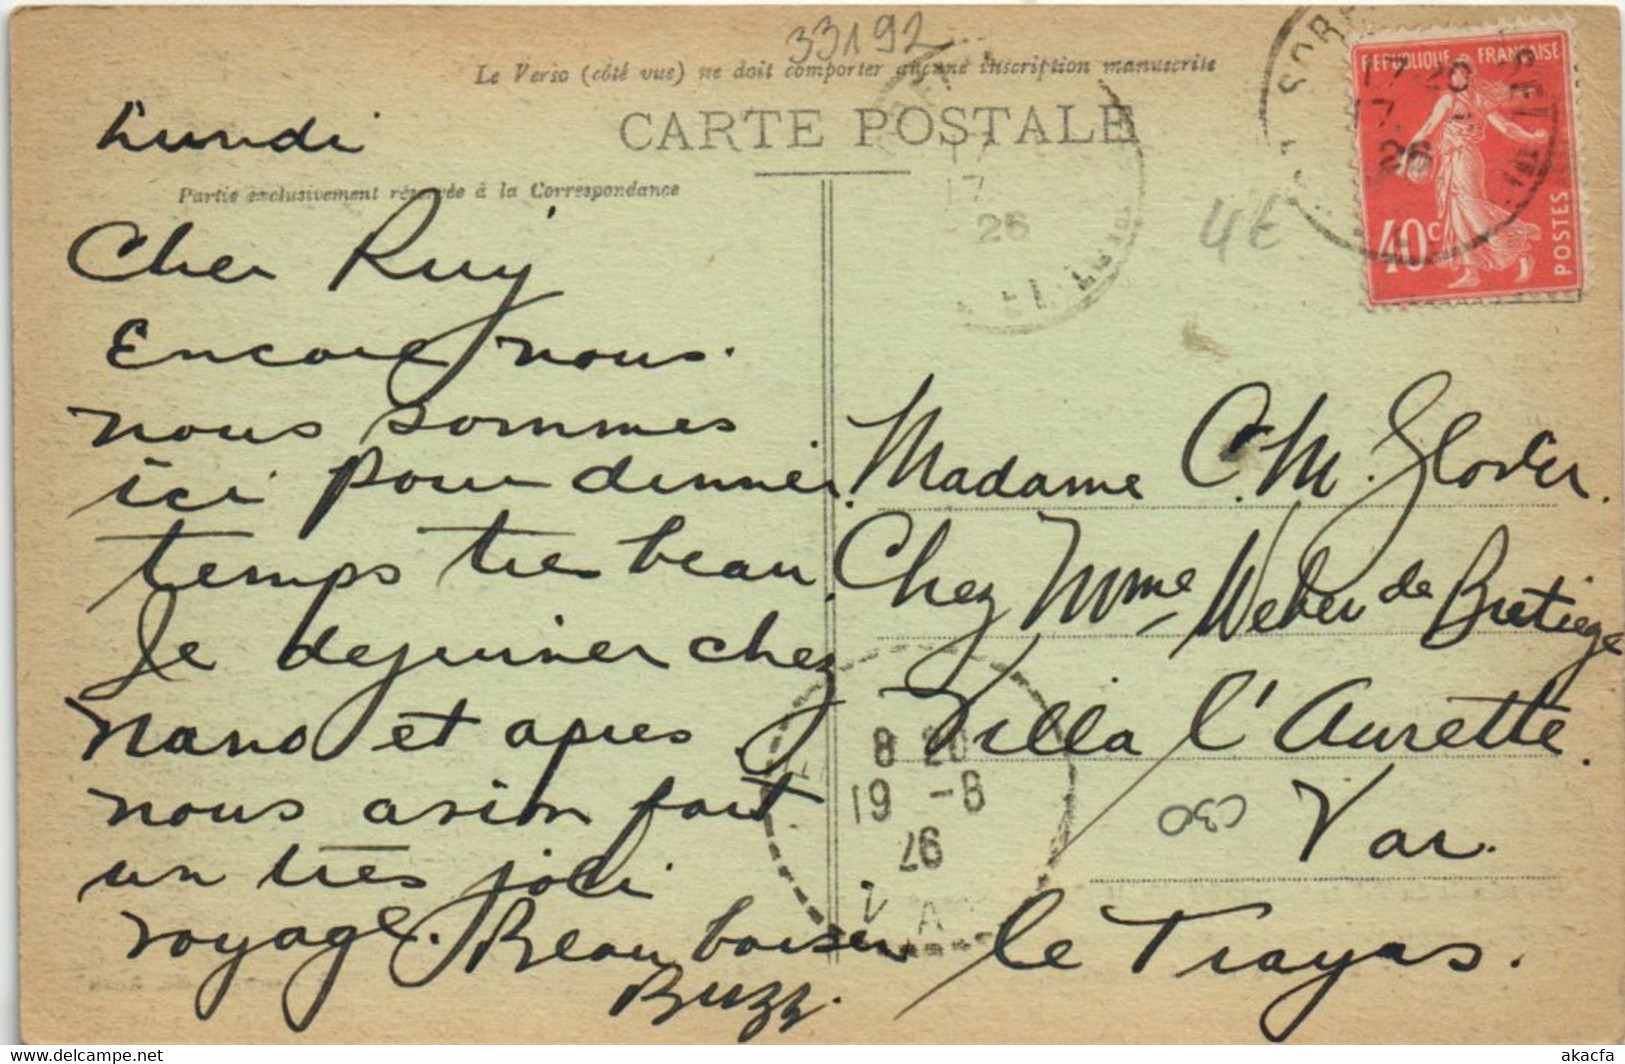 33192
Le Verso (côté vue) ne doit comporter aucune inscription manuscrite
CARTE POSTALE
Lundi
Partie exclusivement réservée à la Correspondance
REPUBLIQUE FRANÇAISE
17 20
17
26
40c
POSTES
17
26
4€
Cher Ruj
Encore nous.
nous sommes
ici pour dinner.
temps tres beau.
Je dejeuner chez
Nano et apres
nous avion fait
un très joli
voyage. Beau baiser
Buzz.
Madame C. M. Glover.
Chez Mme Weber de Bretiege
Villa l'Aurette.
Var.
le Trayas.
8 20
19 -8
26
VA
C30
akacfa